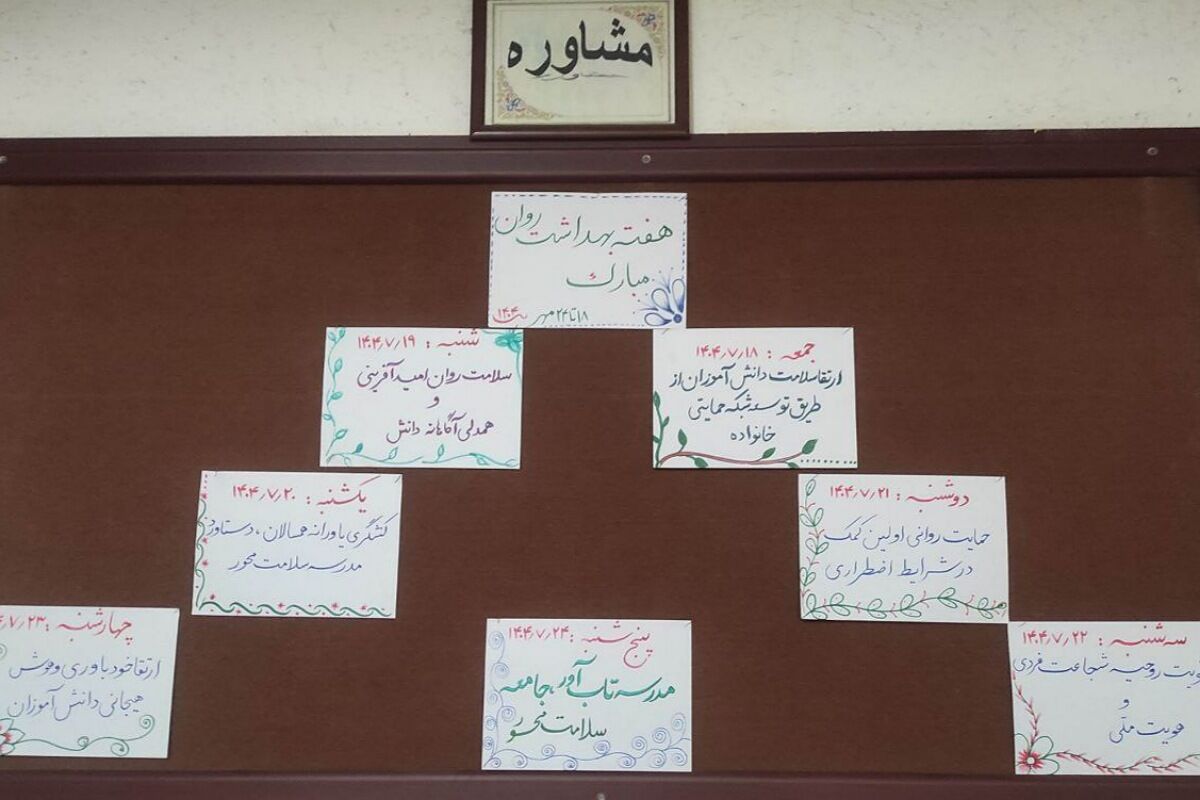 مشاوره
هفته بهداشت روان
مبارک
۱۸ تا ۲۴ مهر ۱۴۰۴
جمعه : ۱۴۰۴/۷/۱۸
ارتقا سلامت دانش آموزان از
طریق توسعه شبکه حمایتی
خانواده
شنبه : ۱۴۰۴/۷/۱۹
سلامت روان امید آفرینی
و
همدلی آگاهانه دانش
یکشنبه : ۱۴۰۴/۷/۲۰
کنشگری یاورانه همسالان ، دستاورد
مدرسه سلامت محور
دوشنبه : ۱۴۰۴/۷/۲۱
حمایت روانی اولین کمک
در شرایط اضطراری
سه شنبه : ۱۴۰۴/۷/۲۲
روحیه شجاعت فردی
و
هویت ملی
چهارشنبه : ۷/۲۳
ارتقا خود باوری و هوش
هیجانی دانش آموزان
پنج شنبه : ۱۴۰۴/۷/۲۴
مدرسه تاب آور ، جامعه
سلامت محور